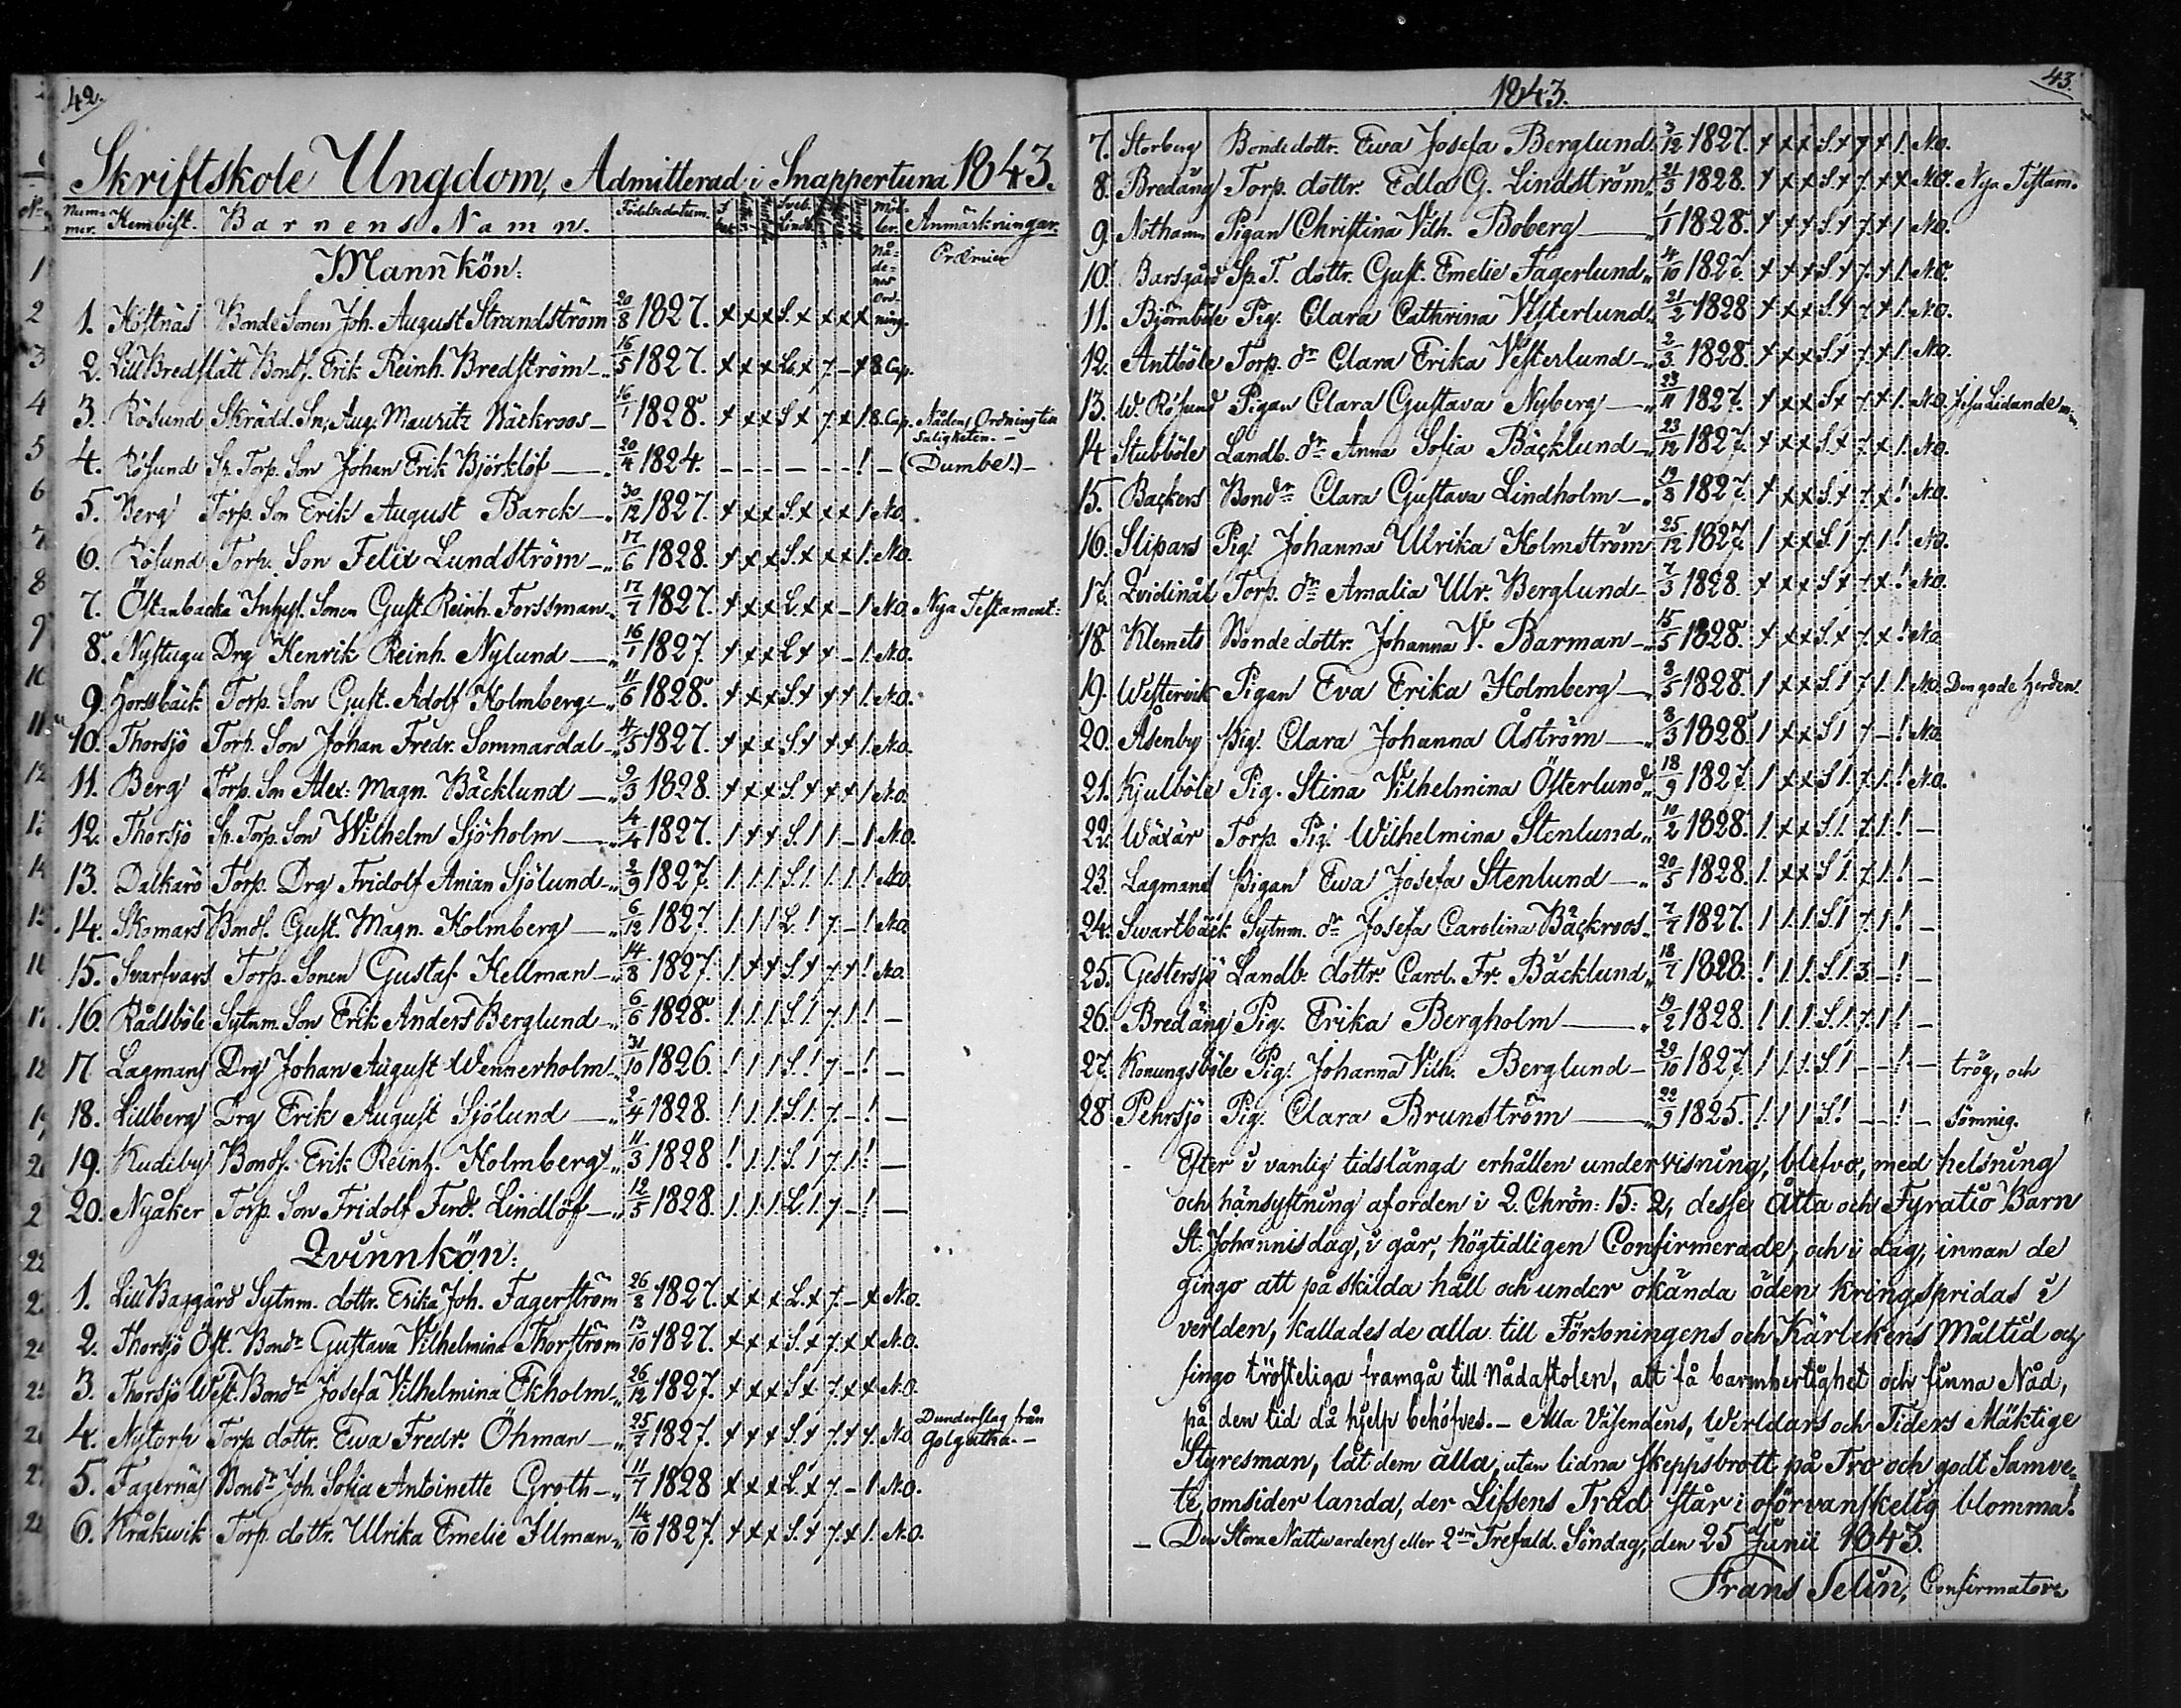 42.
Skriftskole Ungdom, Admitterad i Snappertuna 1843.
Num-mer. Hemvist. Barnens Namn. Födelsedatum. Anmärkningar.
Mannkön: Nådenes Ordning. Præmier
1. Höstnäs Bonde Sonen Joh. August Strandström 20/8 1827. x x x S. x x x x
2. Lill Bredslätt Bonds. Erik Reinh. Bredström 16/5 1827. x x x L. x 7 – x 8 Cap.
3. Rösund Skrädd. Sn, Aug. Mauritz Bäckroos 16/1 1828. x x x S x 7. x 1. 8. Cap. Nådens Ordning till Saligheten. –
4. Rösund Sp. Torp. Son Johan Erik Björklöf 20/4 1824. – – – – – – ! – (Dumbe.) –
5. Berg Torp. Son Erik August Barck 30/12 1827. x x x S. x x x 1. N.O.
6. Rösund Torp. Son Felix Lundström 17/6 1828. x x x S. x x x 1. N.O.
7. Östanbacka Inhys. Sonen Gust. Reinh. Forssman 17/7 1827. x x x L. x x – 1 N.O. Nya Testament:
8. Nystugu Drg Henrik Reinh. Nylund 16/1 1827. x x x L x x – 1. N.O.
9. Horsbäck Torp. Son Gust. Adolf Holmberg 11/6 1828. x x x S. x x x 1. N.O.
10. Thorsjö Torp. Son Johan Fredr. Sommardal 4/5 1827. x x x S. x x x 1. N.O.
11. Berg Torp. Son Alex: Magn. Bäcklund 9/3 1828. x x x S. x x x 1 N.O.
12. Thorsjö Sp. Torp. Son Wilhelm Sjöholm 4/4 1827. 1. x x S. 1 1 – 1 N.O.
13. Dalkarö Torp. Drg Fridolf Anian Sjölund 2/9 1827. 1. 1. 1 S. 1 1. 1. ! N.O.
14. Skomars Bonds. Gust. Magn. Holmberg 6/12 1827. 1. 1. 1 L. ! 7. – ! N.O.
15. Svarfvars Torp. Sonen Gustaf Hellman 14/8 1827. 1. x x S. x 7. x ! N.O.
16. Rådsböle Sytnm. Son Erik Anders Berglund 6/6 1828. 1. 1. 1 S. 1. 7. 1. ! –
17 Lagmans Drg Johan August Wennerholm 31/10 1826. ! 1 1 S. ! 7 – ! –
18. Lillberg Drg Erik August Sjölund 2/4 1828. ! 1. 1. S. 1. 7. – ! –
19. Kudiby Bonds. Erik Reinh. Holmberg 11/3 1828 ! 1. 1. S. 1 7 1. ! –
20. Nyåker Torp. Son Fridolf Ferd. Lindlöf 12/5 1828. 1. 1. 1. L. 1. 7 – ! –
Qvinnkön:
1. Lill Baggård Sytnm. dottr. Erika Joh. Fagerström 26/8 1827. x x x L. x 7. – x N.O.
2. Thorsjö Öst. Bondr Gustava Vilhelmina Thorström 13/10 1827. x x x S. x 7. x x N.O.
3. Thorsjö West. Bondr Josefa Vilhelmina Ekholm 26/12 1827. x x x S x 7. x x N.O.
4. Nytorp Torp. dottr. Ewa Fredr. Öhman 25/7 1827. x x x S. x 7. x x. N.O. Dunderslag från Golgatha. –
5. Fagernäs Bondr Joh. Sofia Antoinette Groth 11/7 1828 x x x L. x 7. – 1 N.O.
6. Kråkwik Torp. dottr. Ulrika Emelie Illman 14/10 1827. x x x S. x 7. x 1. N.O.
43.
1843.
7. Storberg Bonde dottr. Ewa Josefa Berglund 3/12 1827. x x x S. x 7 x 1. N.O.
8. Bredäng Torp. dottr. Edla G. Lindström 21/3 1828. x x x S. x 7. x x N.O. Nya Testam.
9. Nothamn Pigan Christina Vilh. Boberg 1/1 1828. x x x S. x 7. x 1 N.O.
10. Barsgård Sp. T. dottr. Gust. Emelie Fagerlund 4/10 1827. x x x S. x 7. x 1. N.O.
11. Björnböle Pig. Clara Cathrina Westerlund 21/2 1828 x x x S. x 7 x 1. N.O.
12. Antböle Torp. dr Clara Erika Vesterlund 2/3 1828. x x x S. x 7. x 1. N.O.
13. W. Rösund Pigan Clara Gustava Nyberg 23/11 1827. x x x S x 7. x 1. N.O. Jesu Lidande
14 Stubböle Landb. dr Anna Sofia Bäcklund 23/12 1827. x x x S. x 7 x 1. N.O.
15. Backers Bondr Clara Gustava Lindholm 19/8 1827. x x x S. x 7 x ! N.O.
16. Slipars Pig. Johanna Ulrika Holmström 25/12 1827. 1 x x S. 1 7. 1. ! N.O.
17. Qvidinäl Torp. dr Amalia Ulr. Berglund 7/3 1828. x x x S x 7. x ! N.O.
18. Klemets Bonde dottr. Johanna V. Barman 15/5 1828. x x x S. x 7. x ! N.O.
19. Westervik Pigan Eva Erika Holmberg 3/5 1828. 1 x x S. 1 7. 1. 1. N.O. Den gode herden.
20. Åsenby Pig. Clara Johanna Åström 8/3 1828. 1 x x S 1 7 – ! N.O.
21. Kjulböle Pig. Stina Vilhelmina Österlund 18/9 1827 1 x x S 1. 7. 1. ! N.O.
22. Wäxär Torp. Pig. Wilhelmina Stenlund 10/2 1828. 1. x x S. 1. 7. 1. ! –
23. Lagmans Pigan Ewa Josefa Stenlund 20/5 1828. 1. x x S 1. 7. 1. ! –
24. Swartbäck Sytnm. dr Josefa Carolina Bäckroos 7/7 1827. 1. 1. 1. S. 1 7. 1 ! –
25. Gestersjö Landb. dottr. Carol. Fr. Bäcklund 18/7 1828. ! 1. 1. S. 1. 3 – ! –
26. Bredäng Pig. Erika Bergholm 19/2 1828. ! 1. 1. S. 1. 7. 1 ! –
27. Konungsböle Pig. Johanna Vilh. Berglund 29/10 1827 ! 1. 1. S. 1 – – ! – trög, och
28 Pehrsjö Pig. Clara Brunström 22/9 1825. ! 1 1 S. ! – – ! – sömnig.
Efter i vanlig tidslängd erhållen undervisning, blefvo, med helsning
och hänsyftning af orden i 2. Chrön: 15: 2, desse Åtta och Fyratio Barn
St. Johannis dag, i går, högtidligen Confirmerade, och i dag, innan de
gingo att på skilda håll och under okända öden kringspridas i
verlden, kallades de alla till Försoningens och Kärlekens Måltid och
fingo trösteliga framgå till Nådastolen, att få barmhertighet och finna Nåd,
på den tid då hjelp behöfves. – Alla Väsendens, Werldars och Tiders Mäktige
Styresman, låt dem alla, utan lidna skeppsbrott på Tro och godt Samve-
te, omsider landa, der Lifsens Träd står i oförvanskelig blomma!
– Den Stora Nattwardens eller 2dra Trefald. Söndag, den 25 Junii 1843.
Frans Selin, Confirmator